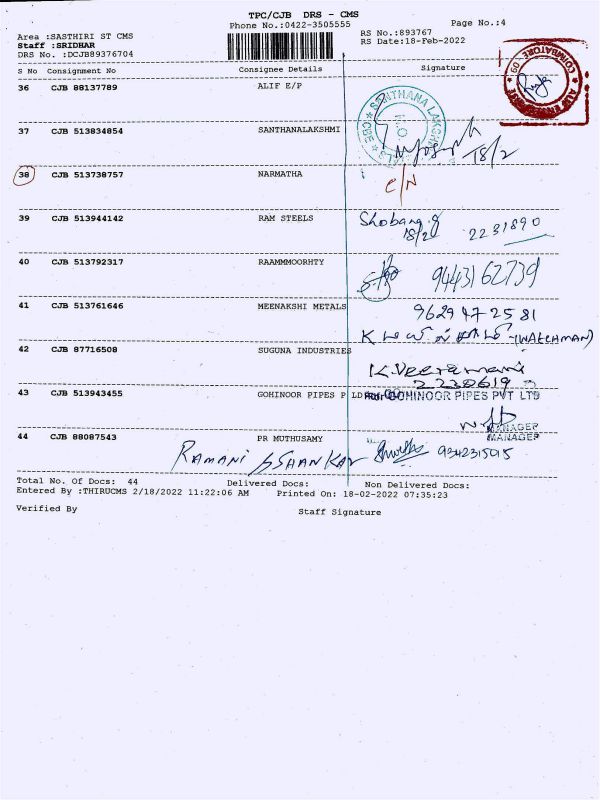 TPC/CJB DRS - CMS
Phone No.:0422-3505555 Page No.:4
Area :SASTHIRI ST CMS RS No.:893767
Staff :SRIDHAR RS Date:18-Feb-2022
DRS No. :DCJB89376704
S No Consignment No Consignee Details Signature
COIMBATORE
36 CJB 88137789 ALIF E/P
SANTHANA LAKSHMI
37 CJB 513834854 SANTHANALAKSHMI
18/2
38 CJB 513738757 NARMATHA C/N
39 CJB 513944142 RAM STEELS Shobana.g
18/2 2231890
40 CJB 513792317 RAAMMMOORHTY 9443162739
41 CJB 513761646 MEENAKSHI METALS 9629472581
(WATCHMAN)
42 CJB 87716508 SUGUNA INDUSTRIES K.Veeramani
2230619
43 CJB 513943455 GOHINOOR PIPES P LD For GOHINOOR PIPES PVT LTD
MANAGER
MANAGER
44 CJB 88087543 PR MUTHUSAMY 9342315015
RAMANI SHANKAR
Total No. Of Docs: 44 Delivered Docs: Non Delivered Docs:
Entered By :THIRUCMS 2/18/2022 11:22:06 AM Printed On: 18-02-2022 07:35:23
Verified By Staff Signature